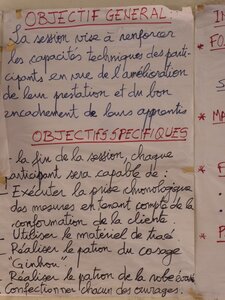 OBJECTIF GENERAL:
La session vise à renforcer
les capacités techniques des parti-
cipants en vue de l'amélioration
de leur prestation et du bon
encadrement de leurs apprentis
OBJECTIFS SPECIFIQUES
- la fin de la session, chaque
participant sera capable de :
Exécuter la prise chronologique
des mesures en tenant compte de la
conformation de la cliente
Utiliser le matériel de tracé
Réaliser le patron du corsage
"Ginhou"
Réaliser le patron de la robe
Confectionner chacun des ouvrages.
IN
FO
S
* MA
* F
* P